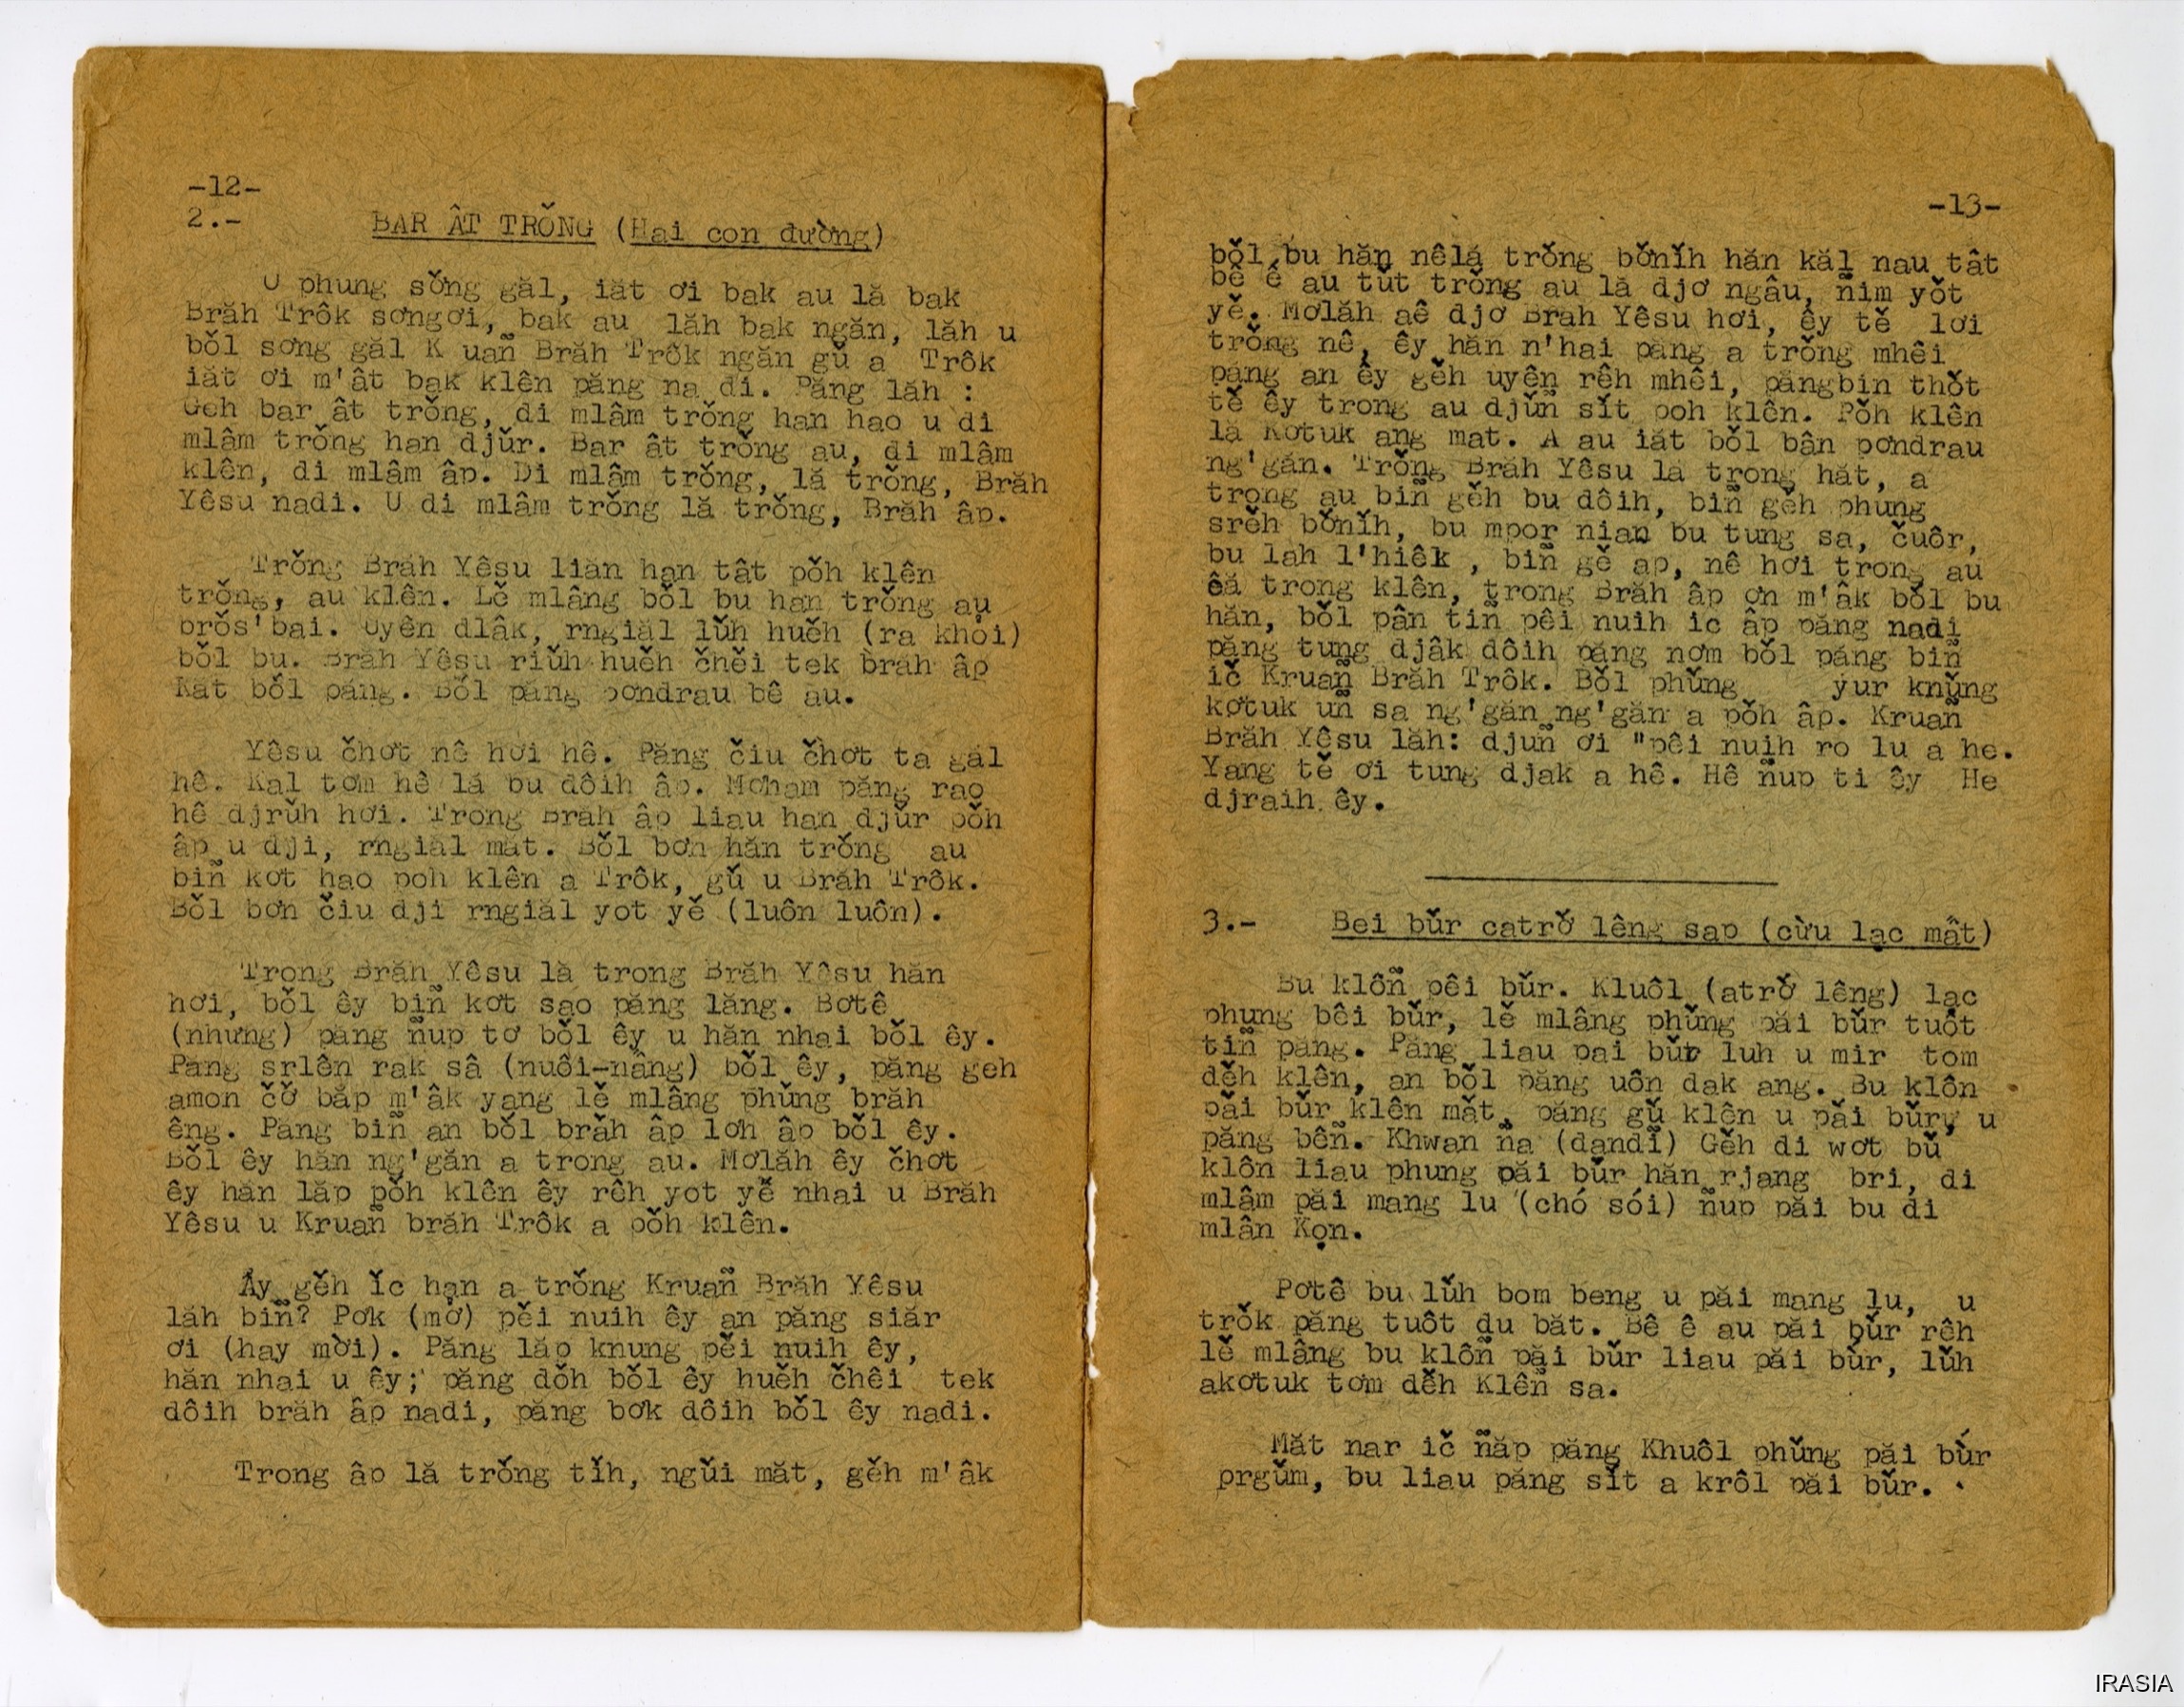 -12-
2.- BAR ÂT TRŎNG (Hai con đường)
U phung sơ̆ng găl, iăt ơi bak au lă bak
Brăh Trôk sơngơi, bak au lăh bak ngăn, lăh u
bŏl sơng găl K uañ Brăh Trôk ngăn gŭ a Trôk
iăt ơi m'ât bak klên păng na di. Păng lăh :
Geh bar ât trŏng, di mlâm trŏng han hao u di
mlâm trŏng han djŭr. Bar ât trŏng au, di mlâm
klên, di mlâm âp. Di mlâm trŏng, lă trŏng, Brăh
Yêsu nadi. U di mlâm trŏng lă trŏng, Brăh âp.
Trŏng Brăh Yêsu liăn han tât pŏh klên
trŏng, au klên. Lĕ mlâng bŏl bu han trŏng au
brŏs'bai. Uyên dlâk, rngiăl lŭh huĕh (ra khỏi)
bŏl bu. Brăh Yêsu riŭh huĕh čhĕi tek brăh âp
Kăt bŏl păng. Bŏl păng pơndrau bê au.
Yêsu čhơt nê hơi hê. Păng čiu čhơt ta găl
hê. Kal tơm hê lă bu dôih âp. Mơham păng rao
hê djrŭh hơi. Trong Brăh âp liau han djŭr pŏh
âp u dji, rngiăl măt. Bŏl bơn hăn trŏng au
biñ kơt hao poh klên a Trôk, gŭ u Brăh Trôk.
Bŏl bơn čiu dji rngiăl yot yĕ (luôn luôn).
Trong Brăh Yêsu lă trong Brăh Yêsu hăn
hơi, bŏl êy biñ kơt sao păng lăng. Bơtê
(nhưng) păng ñup tơ bŏl êy u hăn nhai bŏl êy.
Pang srlên rak sâ (nuôi-nâng) bŏl êy, păng geh
amon čơ̆ băp m'âk yang lĕ mlâng phŭng brăh
êng. Pang biñ an bŏl brăh âp lơh âp bŏl êy.
Bŏl êy hăn ng'găn a trong au. Mơlăh êy čhơt
êy hăn lăp pŏh klên êy rêh yot yĕ nhai u Brăh
Yêsu u Kruañ brăh Trôk a pŏh klên.
Ây gĕh ĭc han a trŏng Kruañ Brăh Yêsu
lăh biñ? Pơk (mở) pĕi nuih êy an păng siăr
ơi (hay mời). Păng lăp knung pĕi nuih êy,
hăn nhai u êy; păng dŏh bŏl êy huĕh čhêi tek
dôih brăh âp nadi, păng bơk dôih bŏl êy nadi.
Trong âp lă trŏng tĭh, ngŭi măt, gĕh m'âk
-13-
bŏl bu hăn nêlá trŏng bơ̆nĭh hăn kăl nau tât
bê ê au tŭt trŏng au lă djơ ngâu, ñim yŏt
yĕ. Mơlăh aê djơ Brăh Yêsu hơi, êy tĕ lơi
trŏng nê, êy hăn n'hai păng a trŏng mhêi
păng an êy gĕh uyên rêh mhêi, păngbin thŏt
tĕ êy trong au djŭñ sĭt poh klên. Pŏh klên
lă Kơtuk ang mat. A au iăt bŏl bân pơndrau
ng'găn. Trŏng Brăh Yêsu lă trong hăt, a
trong au biñ gĕh bu dôih, biñ gĕh phung
srĕh bơ̆nĭh, bu mpor nian bu tung sa, čuôr,
bu lah l'hiêk , biñ gĕ ap, nê hơi trong au
êă trong klên, trong Brăh âp ơn m'âk bŏl bu
hăn, bŏl pân tiñ pêi nuih ic âp păng nadi
păng tung djâk dôih păng nơm bŏl păng biñ
iĕ Kruañ Brăh Trôk. Bŏl phŭng yur knŭng
kơtuk uñ sa ng'găn ng'găn a pŏh âp. Kruañ
Brăh Yêsu lăh: djuñ ơi "pêi nuih ro lu a he.
Yang tĕ ơi tung djak a hê. Hê ñup ti êy He
djraih êy.
3.- Bei bŭr catrơ̆ lêng sap (cừu lạc mất)
Bu klôñ pêi bŭr. Kluôl (atrơ̆ lêng) lạc
phung bêi bŭr, lĕ mlâng phŭng păi bŭr tuôt
tiñ păng. Păng liau pai bŭr luh u mir tom
dĕh klên, an bŏl păng uôn dak ang. Bu klôn
păi bŭr klên măt, păng gŭ klên u păi bŭr, u
păng bêñ. Khwan ña (dandĭ) Gĕh di wơt bŭ
klôn liau phung păi bŭr hăn rjang bri, di
mlâm păi mang lu (chó sói) ñup păi bu di
mlân Kọn.
Pơtê bu lŭh bom beng u păi mang lu, u
trŏk păng tuôt du băt. Bê ê au păi bŭr rêh
lĕ mlâng bu klôñ păi bŭr liau păi bŭr, lŭh
akơtuk tơm dĕh Klêñ sa.
Măt nar iĕ ñăp păng Khuôl phŭng păi bŭr
prgŭm, bu liau păng sĭt a krôl păi bŭr.
IRASIA